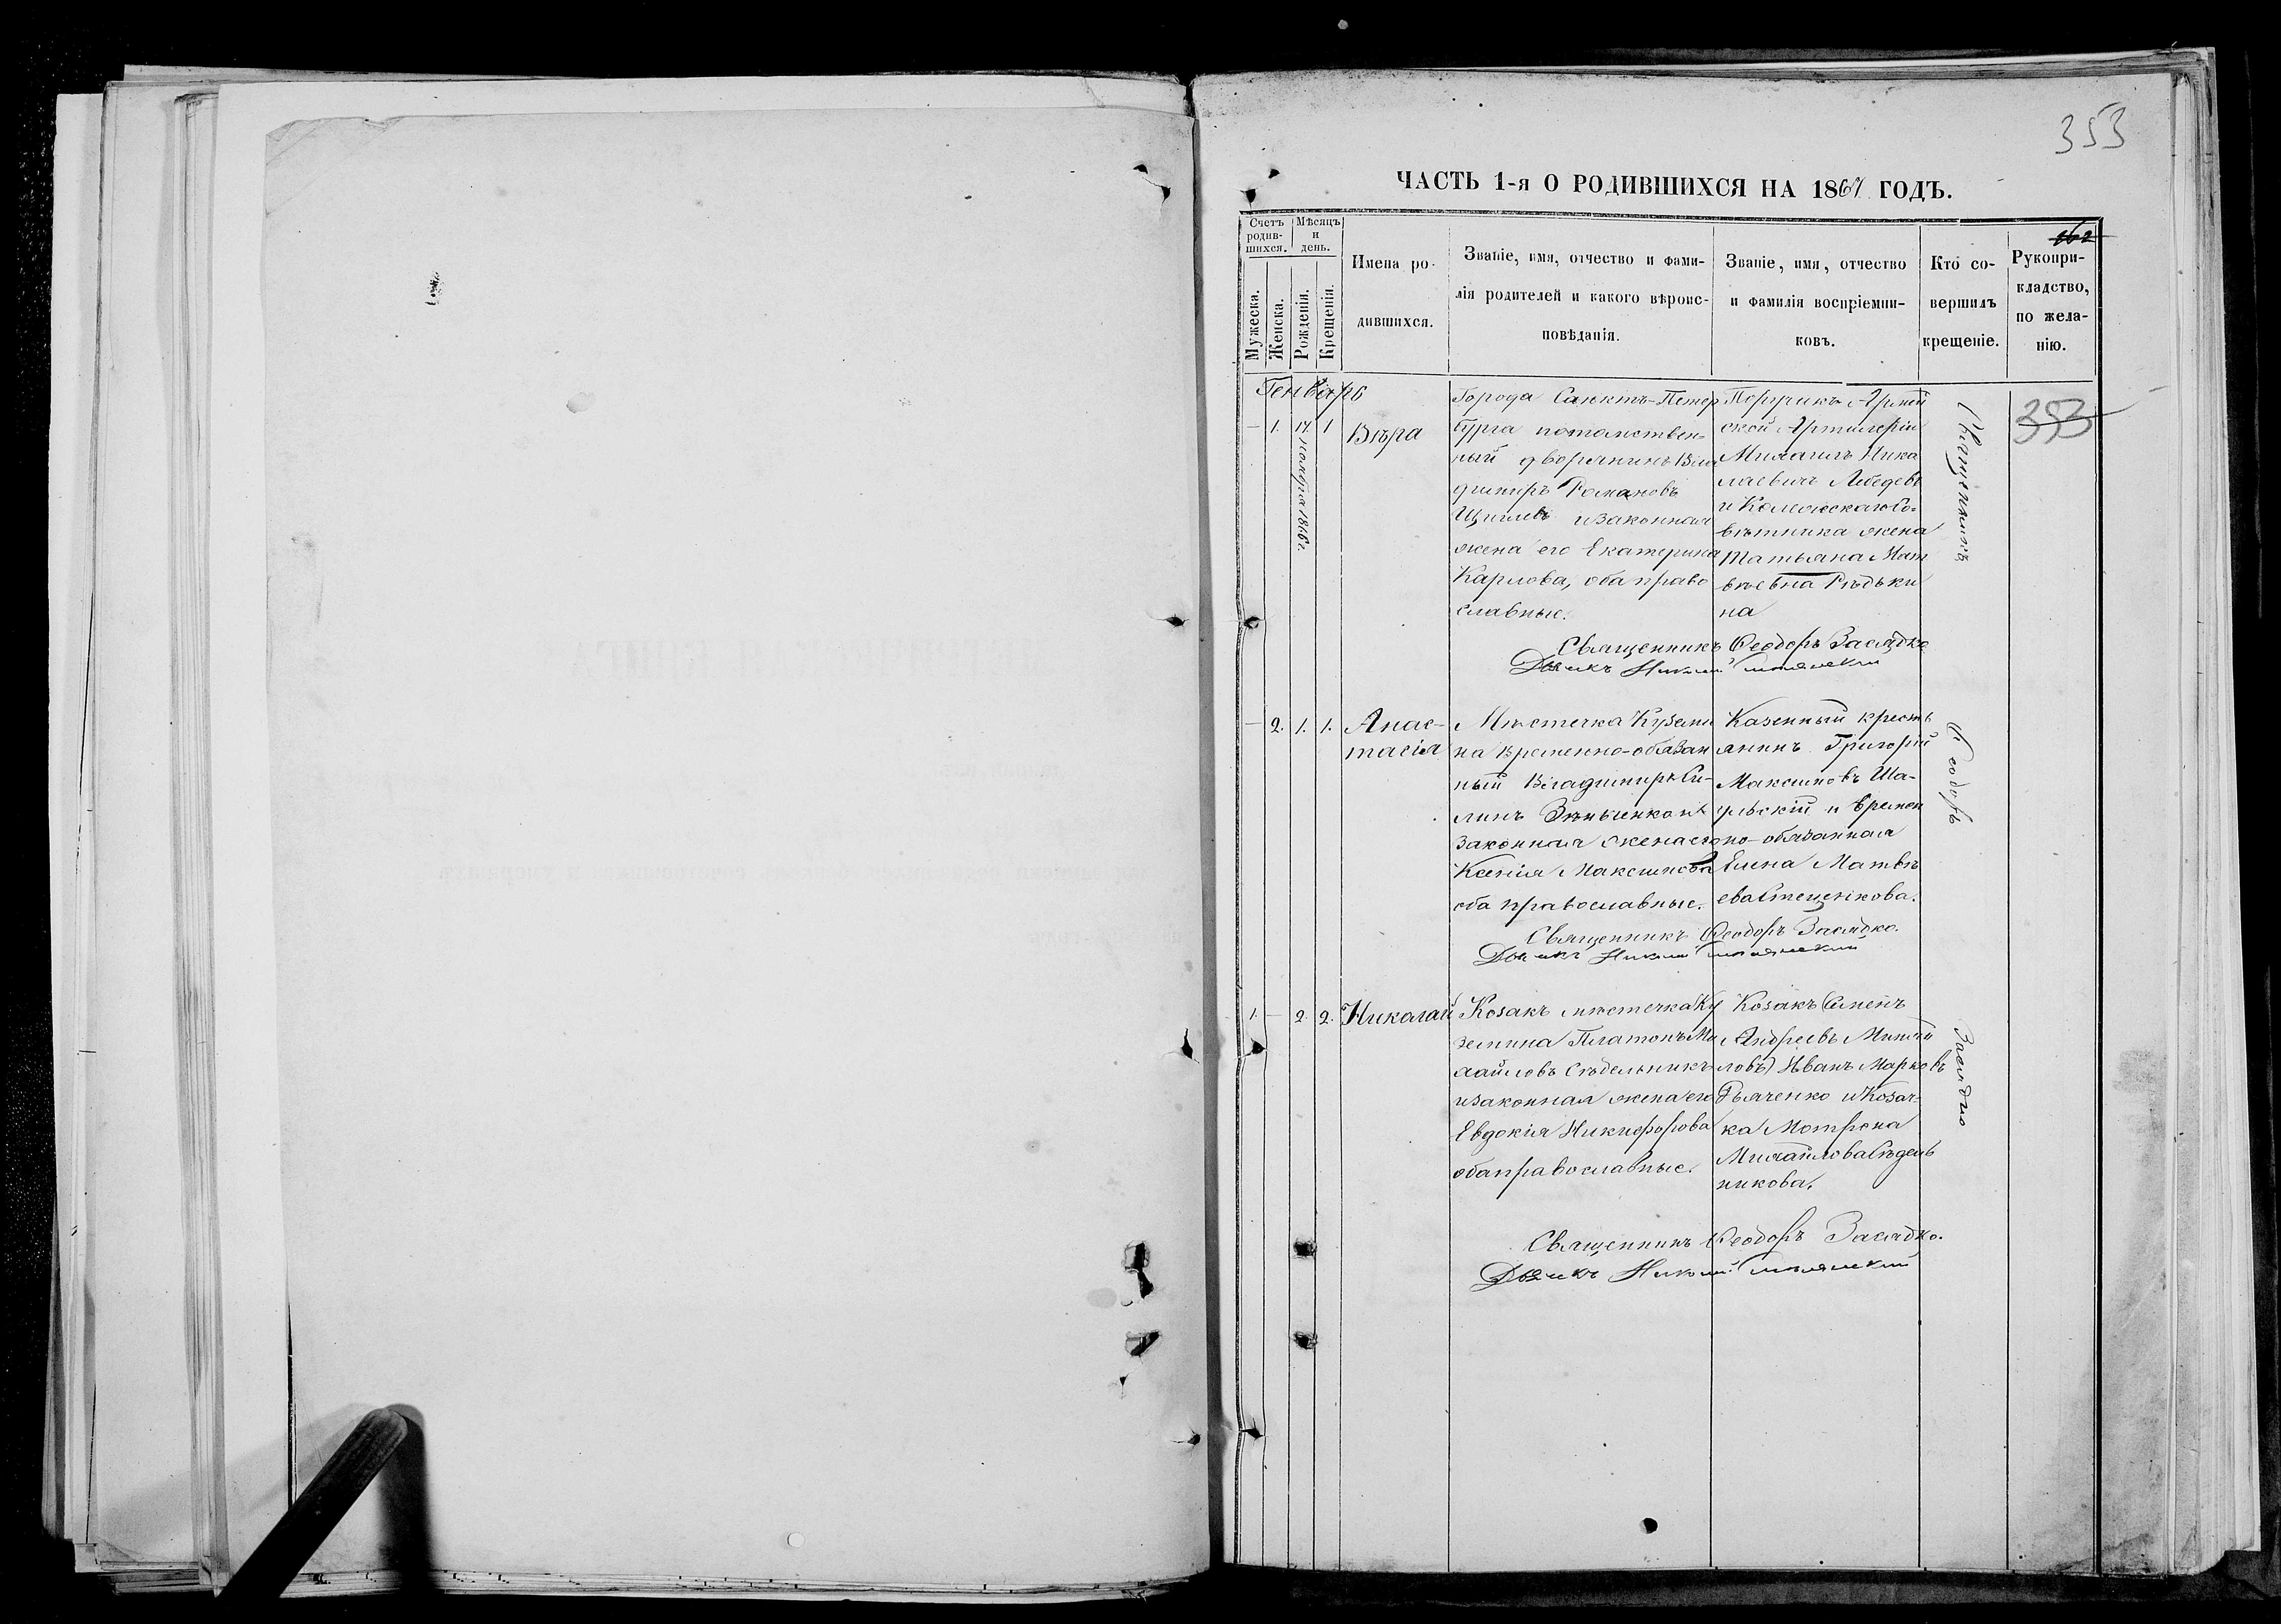 353
ЧАСТЬ 1-я О РОДИВШИХСЯ НА 1867 ГОДЪ.
Счетъ родив-шихся.
Мѣсяцъ и день.
Мужеска.
Женска.
Рожденія.
Крещенія.
Имена ро-
дившихся.
Званіе, имя, отчество и фами-
лія родителей и какого вѣроис-
повѣданія.
Званіе, имя, отчество
и фамилія воспріемни-
ковъ.
Кто со-
вершилъ
крещеніе.
Рукопри-
кладство,
по жела-
нію.
162
353
Генварь
— 1. 17 ноября 1866 г. 1
Вѣра
Города Санктъ-Петер
бурга потомствен-
ный дворянинъ Вла
димиръ Романовъ
и законная
жена его Екатерина
Карлова, оба право
славные.
Поручикъ Армей
ской Артилеріи
Михаилъ Нико
лаевичъ Лебедевъ
и Колежскаго Со-
вѣтника жена
Татьяна Мат
вѣевна Рѣдьки
на
Священникъ Ѳеодоръ Засядко
Дьячекъ
— 2. 1. 1.
Анас-
тасія
Мѣстечка Куземи
на временно-обязан
ный Владимиръ Си-
линъ
законная жена его
Ксенія Максимова
оба православные.
Казенный кресть
янинъ Григорій
Максимовъ Ша-
и времен
но-обязанная
Елена Матвѣ
ева Стеценкова.
Священникъ Ѳеодоръ Засядко.
Дьячекъ
1. — 2. 2.
Николай
Козакъ мѣстечка Ку
земина Платонъ Ми
хайловъ Сѣдельникъ
и законная жена его
Евдокія Никифорова
оба православные.
Козакъ Семенъ
Андреевъ Михай
ловъ, Иванъ Марковъ
Дьяченко и Козач-
ка Мотрона
Михайлова Сѣдель
никова.
Священникъ Ѳеодоръ Засядко.
Дьячекъ
Священникъ
Ѳеодоръ
Засядко